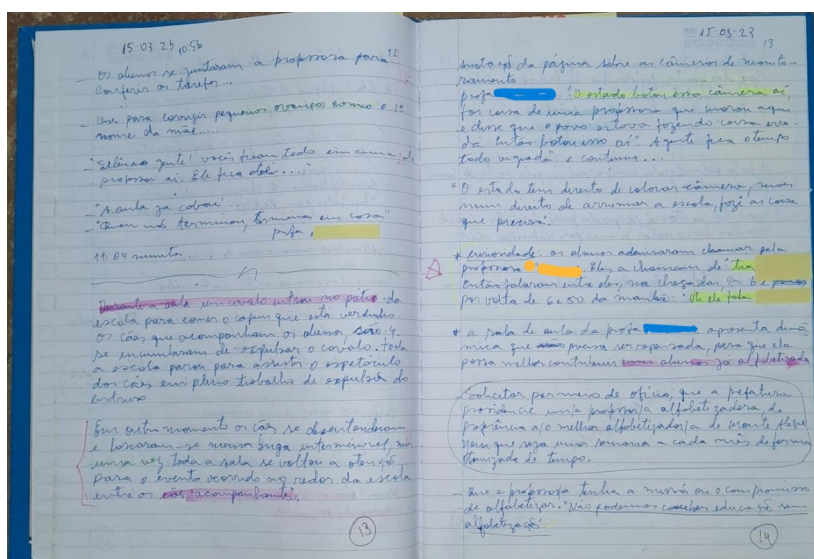 15.03.23 10:56
12
- Os alunos se juntaram à professora para
conferir as tarefas...
- Um para corrigir pequenos avanços como o 1º
nome da mãe....
gente! vocês ficam todo em cima do
professor aí. Ele fica até...."
- "A aula já acabou!...
- "Quem não terminou, termina em casa"
profa.
11:04 minutos.
Durante a aula um cavalo entrou no pátio da
escola para comer o capim que está verdinho
os cães que acompanham os alunos, são 4,
se incumbiram de expulsar o cavalo. toda
a escola parou para assistir o espetáculo
dos cães em pleno trabalho de expulsão do
intruso.
Em outro momento os cães se desentenderam
e lançaram-se numa briga interminável,
uma vez toda a sala se voltou a atenção
para o evento ocorrido ao redor da escola
entre os cães "acompanhantes".
13
15.03.23
13
anotação da página sobre as câmeras de monito-
ramento
profa "O estado botou essa câmera aí,
por causa de uma professora que morou aqui
e disse que o povo estava fazendo coisa erra-
da então botou isso aí". A gente fica o tempo
todo vigiado" e continua...
"O estado tem direito de colocar câmera, mas
num direito de arrumar a escola, fazê as coisa
que precisa".
* curiosidade: os alunos chamar pela
professora. Eles a chamam de "tia
então falaram entre eles, na chegada,
por volta de 6 e 50 da manhã: "Oh ele fala
* a sala de aula da profa apresenta dinâ-
mica que precisa ser repensada, para que ela
possa melhor contribuir com alunos já alfabetizada
- Solicitar por meio de ofício, que a prefeitura
um/a professor/a alfabetizadora, de
preferência a/o melhor alfabetizador/a de Monte Alegre
nem que seja uma semana a cada mês de forma
de tempo.
- Que a professora tenha a missão ou o compromisso
de alfabetizar. "Não podemos conceber educação sem
alfabetização".
14